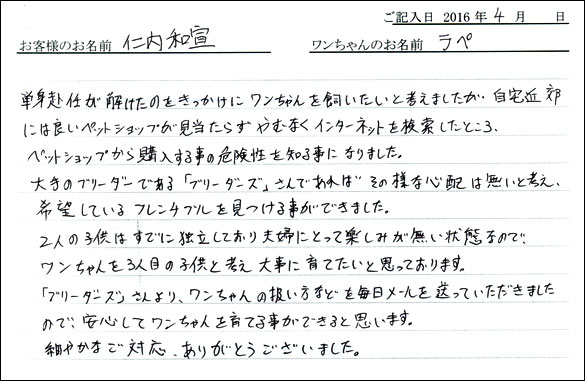 ご記入日 2016 年 4 月 日
お客様のお名前 仁内和宣 ワンちゃんのお名前 ラペ
単身赴任が解けたのをきっかけにワンちゃんを飼いたいと考えましたが、自宅近郊
には良いペットショップが見当たらずやむなくインターネットを検索したところ、
ペットショップから購入する事の危険性を知る事になりました。
大手のブリーダーである「ブリーダーズ」さんであればその様な心配は無いと考え、
希望しているフレンチブルを見つける事ができました。
2人の子供はすでに独立しており夫婦にとって楽しみが無い状態なので、
ワンちゃんを3人目の子供と考え大事に育てたいと思っております。
「ブリーダーズ」さんより、ワンちゃんの扱い方などを毎日メールを送っていただきました
ので、安心してワンちゃんを育てる事ができると思います。
細やかなご対応、ありがとうございました。